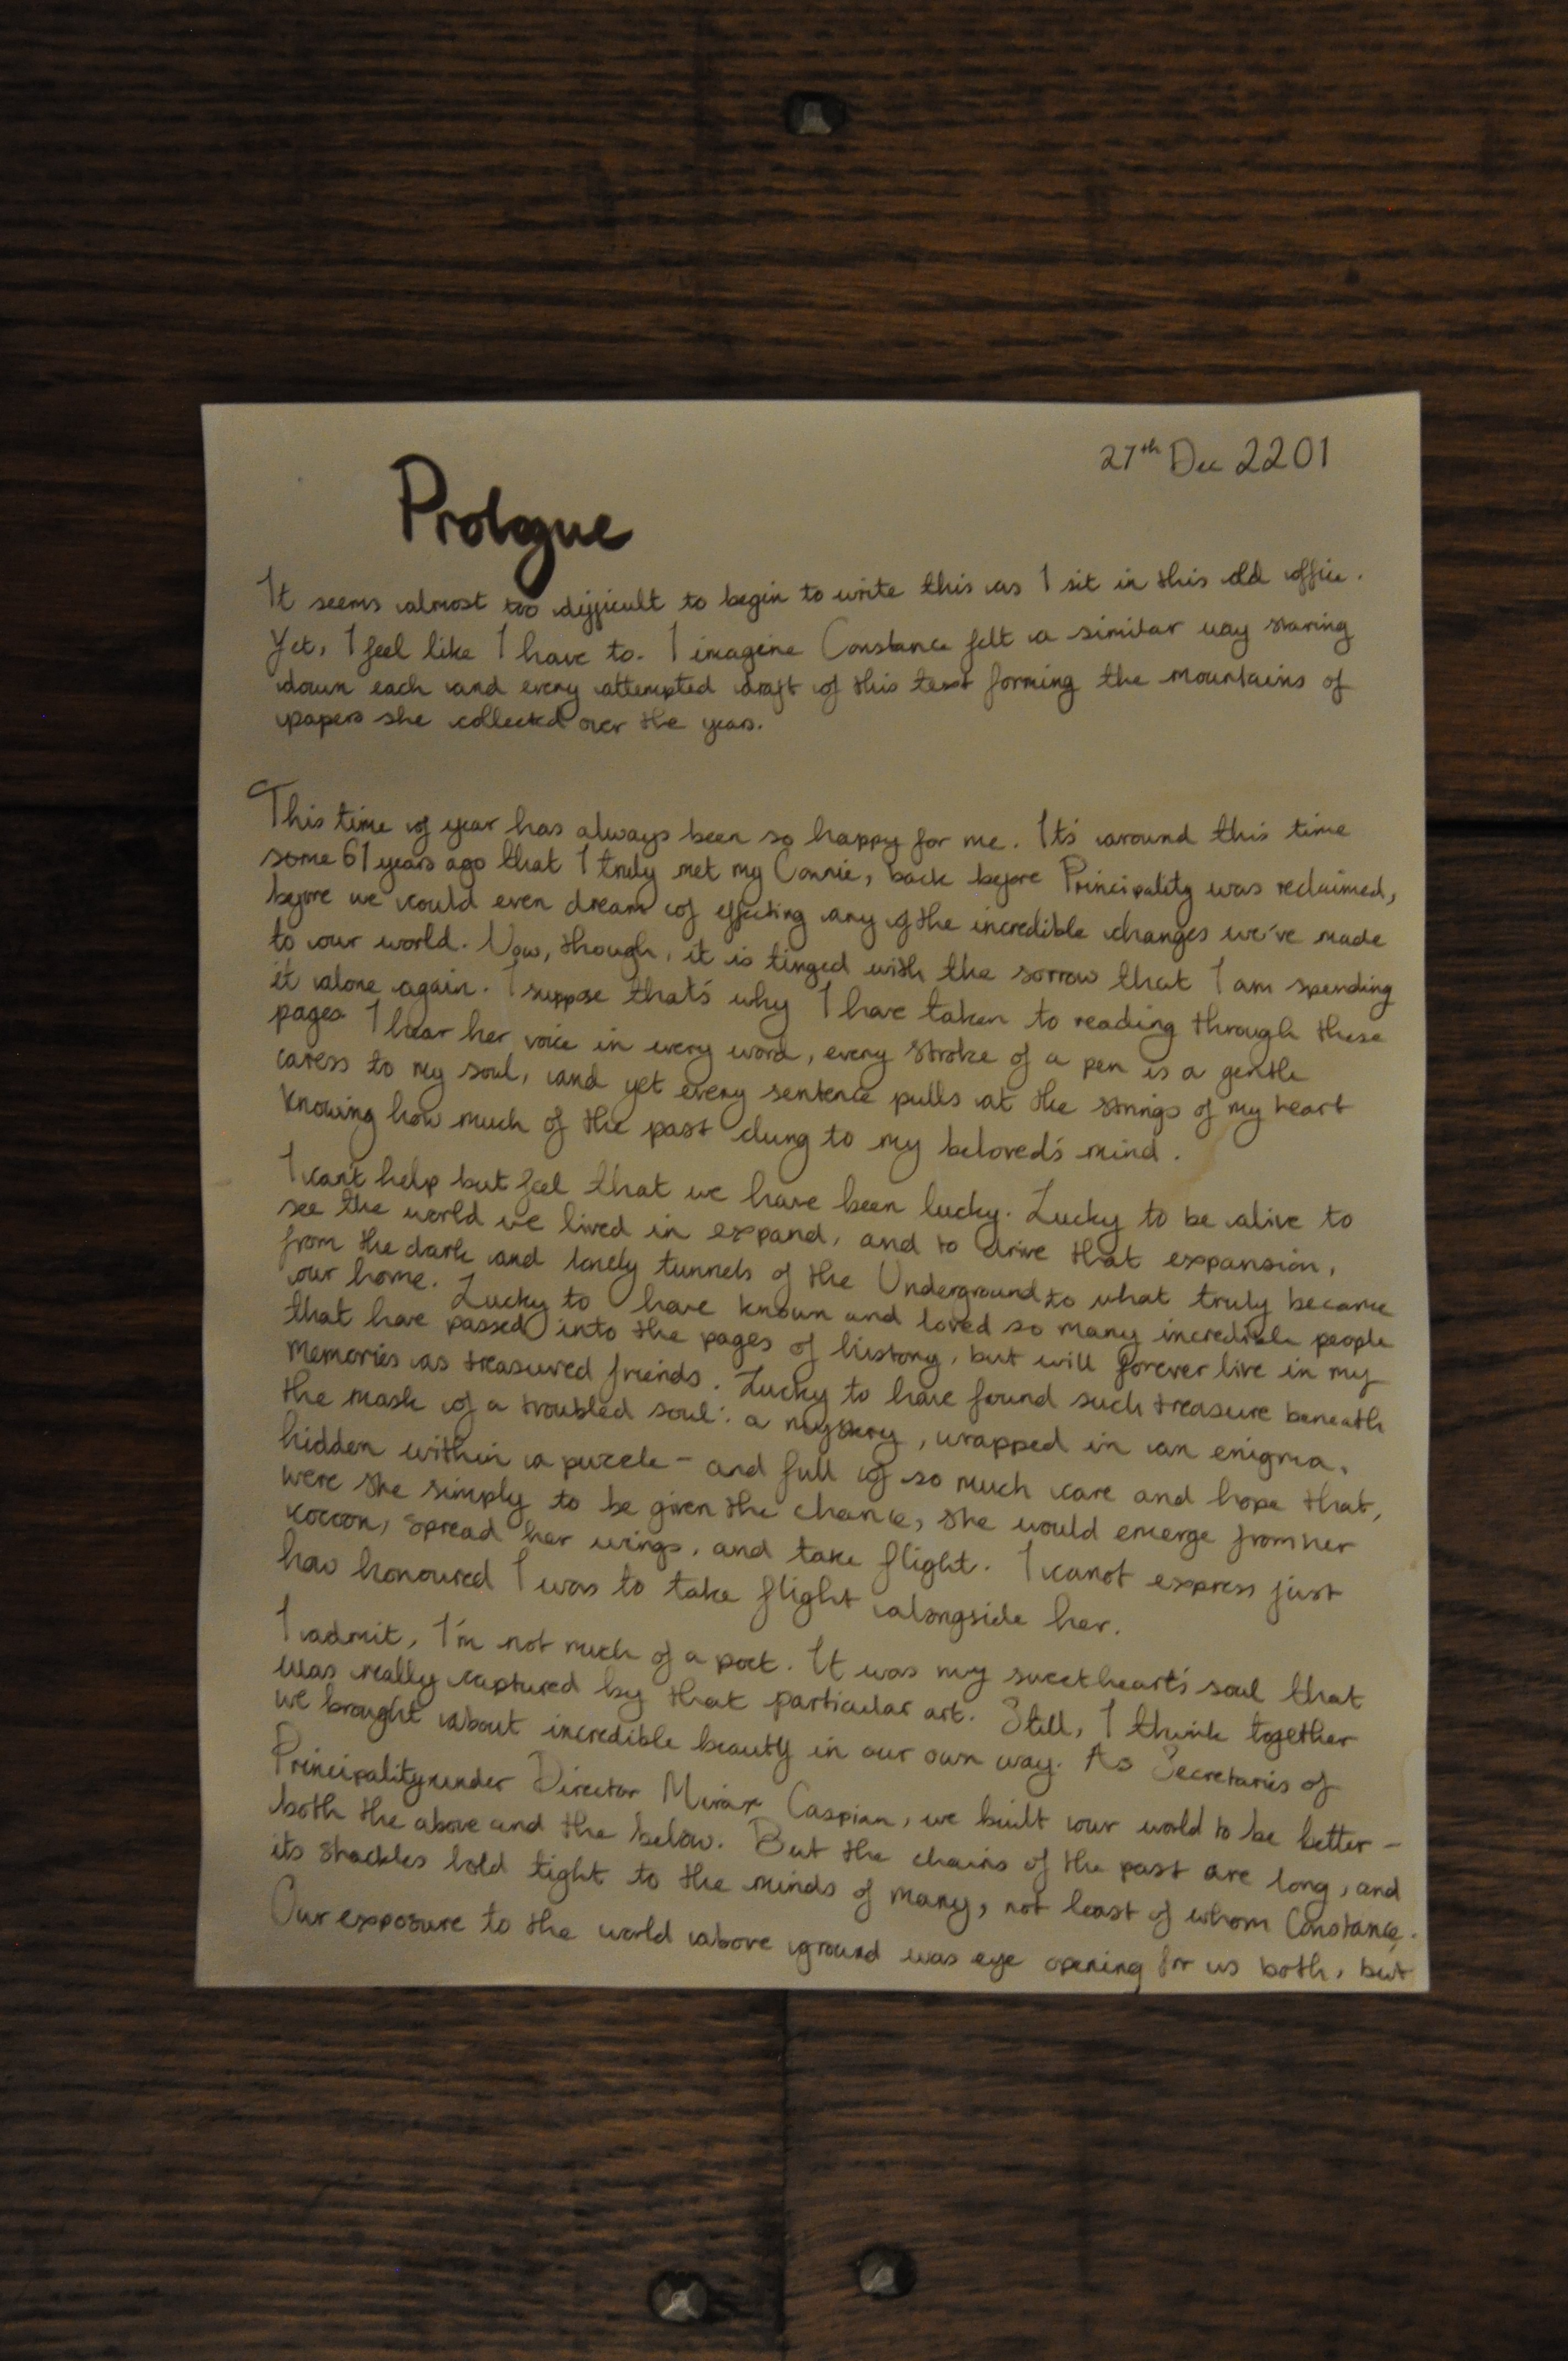 27th Dec 2201
Prologue
It seems almost too difficult to begin to write this as I sit in this old office.
Yet, I feel like I have to. I imagine Constance felt a similar way staring
down each and every attempted draft of this text forming the mountains of
papers she collected over the years.
This time of year has always been so happy for me. It's around this time
some 61 years ago that I truly met my Connie, back before Principality was reclaimed,
before we could even dream of effecting any of the incredible changes we've made
to our world. Now, though, it is tinged with the sorrow that I am spending
it alone again. I suppose that's why I have taken to reading through these
pages I hear her voice in every word, every stroke of a pen is a gentle
caress to my soul, and yet every sentence pulls at the strings of my heart
knowing how much of the past clung to my beloved's mind.
I can't help but feel that we have been lucky. Lucky to be alive to
see the world we lived in expand, and to drive that expansion,
from the dark and lonely tunnels of the Underground to what truly became
our home. Lucky to have known and loved so many incredible people
that have passed into the pages of history, but will forever live in my
memories as treasured friends. Lucky to have found such treasure beneath
the mask of a troubled soul: a mystery, wrapped in an enigma,
hidden within a puzzle - and full of so much care and hope that,
were she simply to be given the chance, she would emerge from her
cocoon, spread her wings, and take flight. I canot express just
how honoured I was to take flight alongside her.
I admit, I'm not much of a poet. It was my sweetheart's soul that
was really captured by that particular art. Still, I think together
we brought about incredible beauty in our own way. As Secretaries of
Principality under Director Mirax Caspian, we built our world to be better -
both the above and the below. But the chains of the past are long, and
its shackles hold tight to the minds of many, not least of whom Constance.
Our exposure to the world above ground was eye opening for us both, but